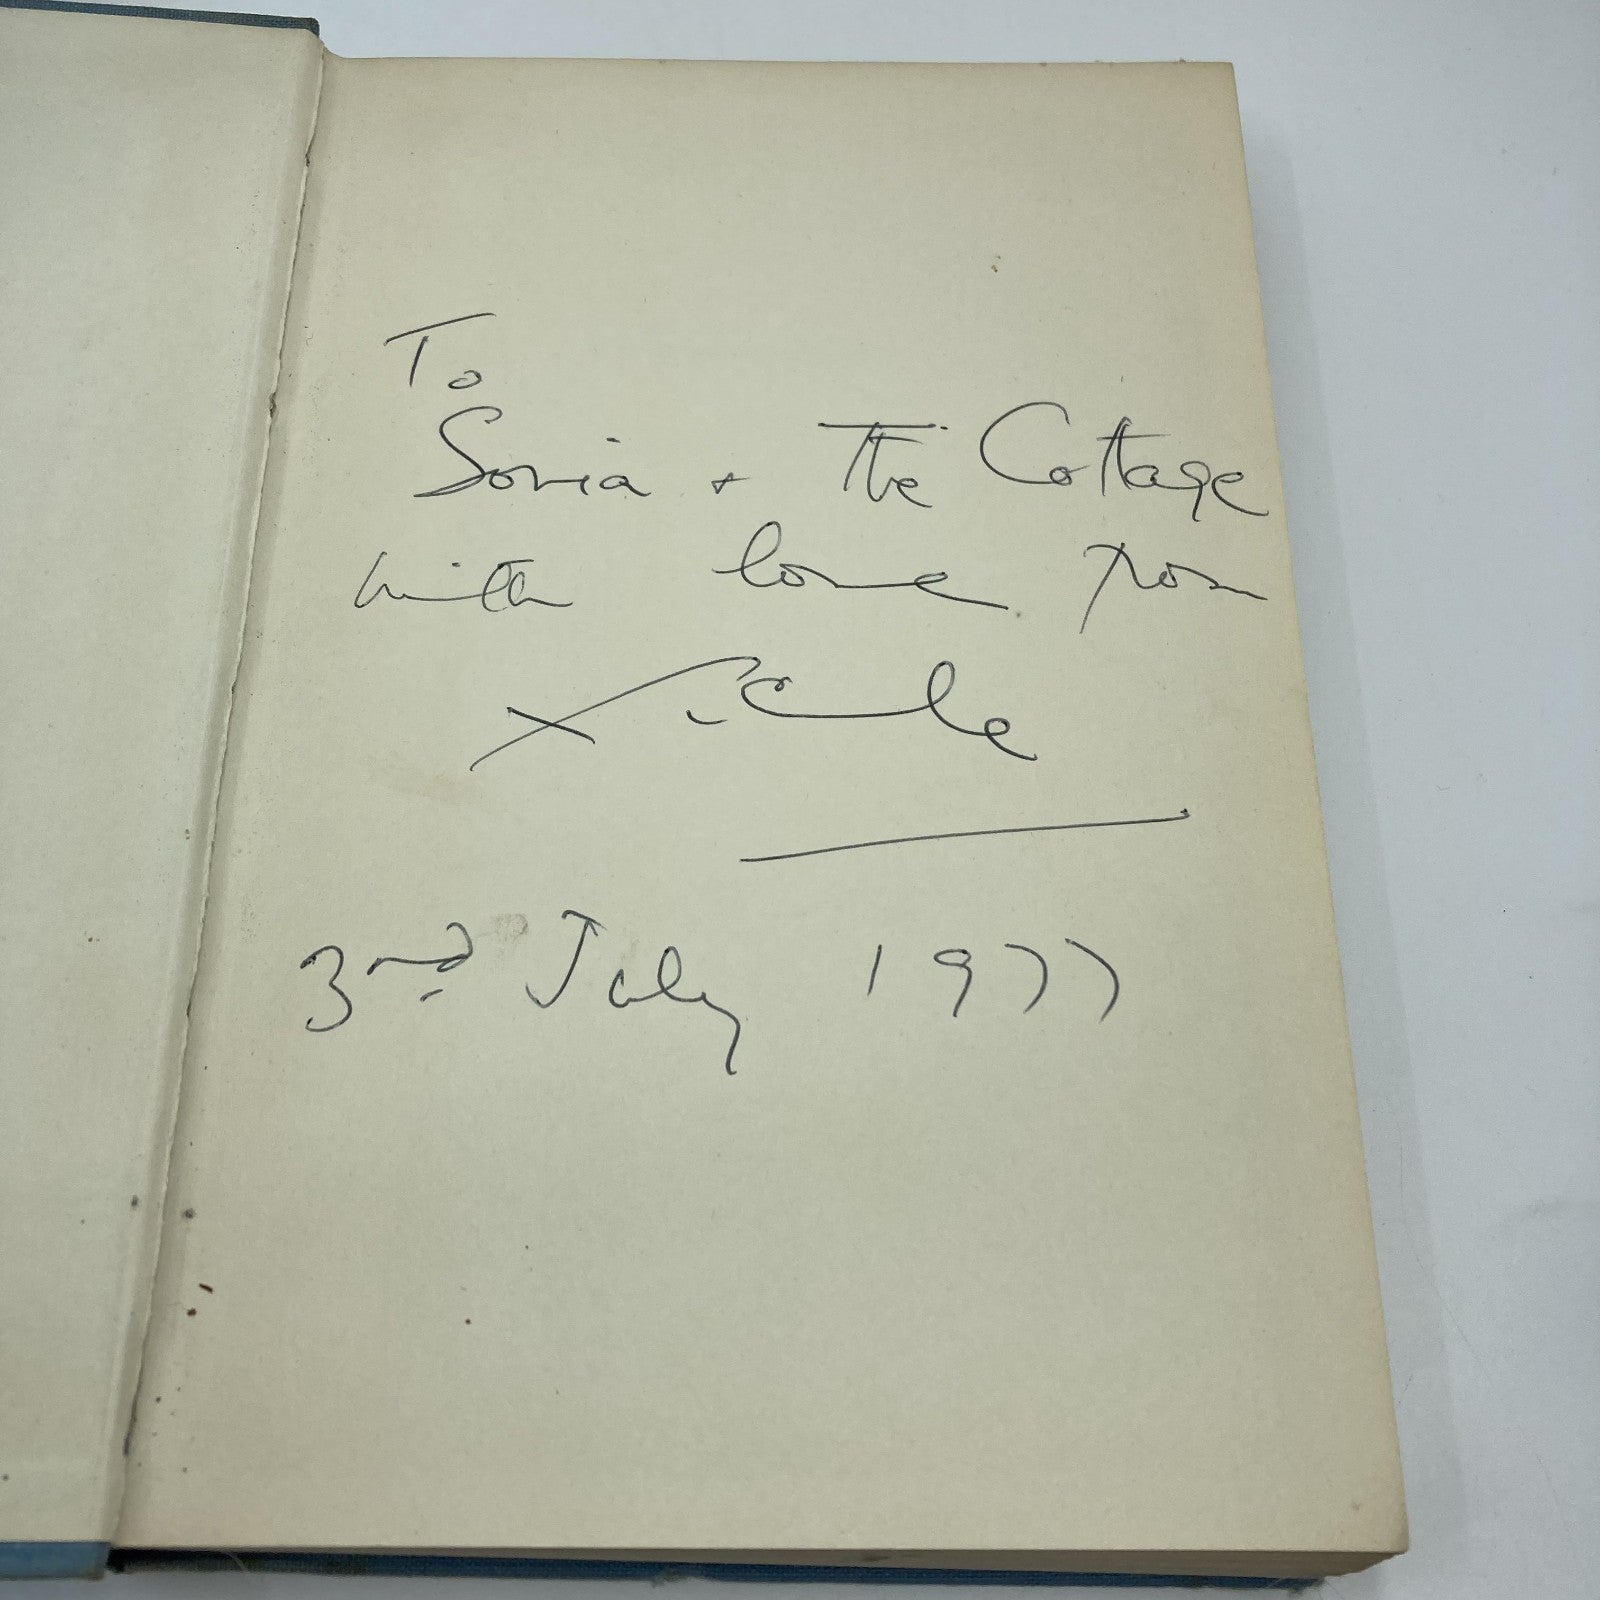 To
Sonia + The Cottage
with love from
3rd July 1977